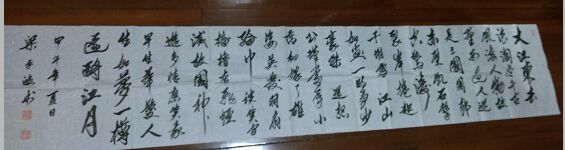 大江東去
浪淘尽千古
风流人物故
壘西邊人道
是三國周郎
赤壁乱石穿
空驚濤
裂岸捲起
千堆雪 江山
如画一时多少
豪傑 遥想
公瑾當年小
喬初嫁了雄
姿英發羽扇
綸巾 談笑间
檣櫓灰飛煙
滅故國神
遊多情應笑我
早生華髮人
生如夢一樽
還酹江月
甲午年夏日